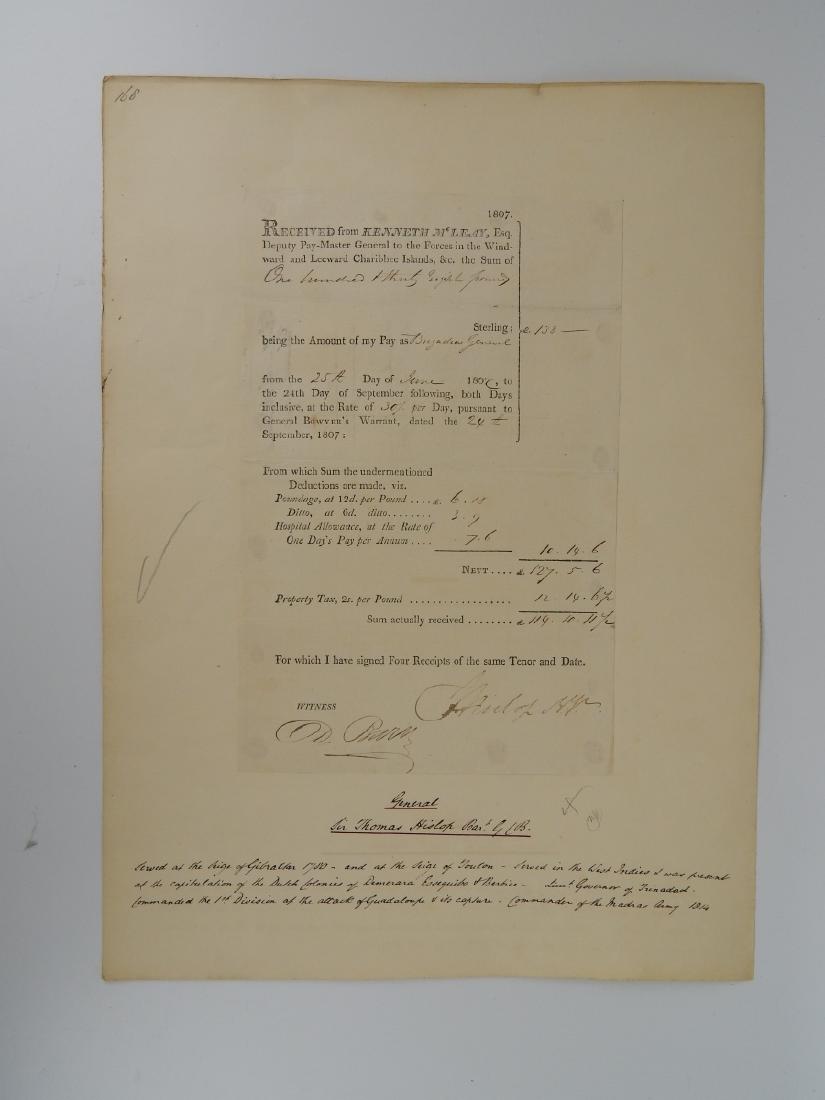 168
1807.
RECEIVED from KENNETH McLEAY, Esq.
Deputy Pay-Master General to the Forces in the Wind-
ward and Leeward Charibbee Islands, &c. the Sum of
One hundred & thirty Eight pounds
Sterling; £. 138 —
being the Amount of my Pay as Brigadier General
from the 25th Day of June 1807, to
the 24th Day of September following, both Days
inclusive, at the Rate of 30/ per Day, pursuant to
General BOWYER's Warrant, dated the 24th
September, 1807:
From which Sum the undermentioned
Deductions are made, viz.
Poundage, at 12d. per Pound .... £. 6. 18
Ditto, at 6d. ditto........ 3. 9
Hospital Allowance, at the Rate of
One Day's Pay per Annum .... 7. 6
10. 14. 6
NETT.... £. 127. 5. 6
Property Tax, 2s. per Pound .................. 12. 14. 6½
Sum actually received ........ £ 114. 10. 11½
For which I have signed Four Receipts of the same Tenor and Date.
WITNESS
Hislop
General
Sir Thomas Hislop Bart. G.C.B.
Served at the Siege of Gibraltar 1780 - and at the Siege of Toulon - Served in the West Indies & was present
at the capitulation of the Dutch Colonies of Demerara Essequibo & Berbice - Lieut Governor of Trinadad -
Commanded the 1st Division at the attack of Guadaloupe & its capture - Commander of the Madras Army 1814